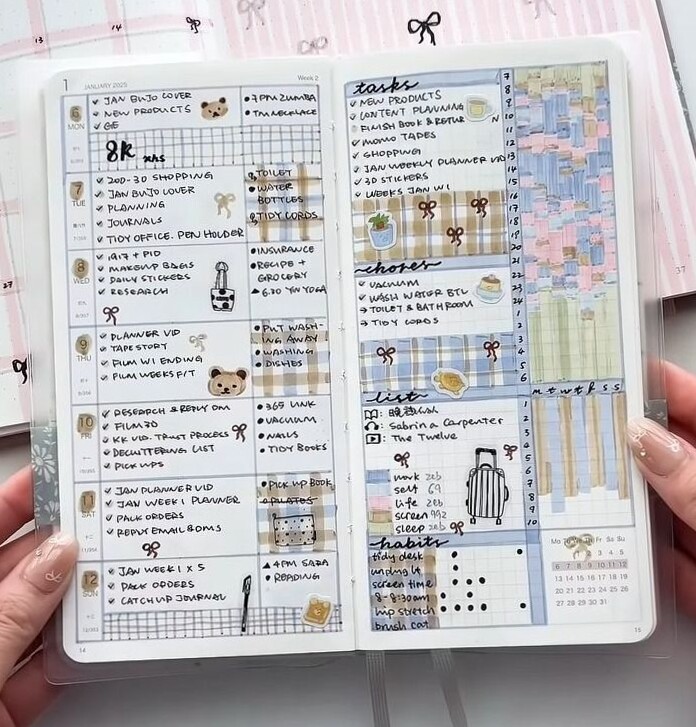 13
14
27
37
1
JANUARY 2025
Week 2
6
MON
✓ JAN BUJO COVER
✓ NEW PRODUCTS
✓ GE
• 7PM ZUMBA
• TM NECKLACE
8K xhs
7
TUE
✓ 200-30 SHOPPING
✓ JAN BUJO COVER
✓ PLANNING
✓ JOURNALS
✓ TIDY OFFICE. PEN HOLDER
TOILET
• WATER
BOTTLES
TIDY CORDS
8
WED
✓ 1917 + PID
✓ MAKEUP BAGS
✓ DAILY STICKERS
✓ RESEARCH
• INSURANCE
• RECIPE +
GROCERY
▲ 6.30 YIN YOGA
9
THU
✓ PLANNER VID
✓ TAPE STORY
✓ FILM W1 ENDING
✓ FILM WEEKS F/T
• PUT WASH-
ING AWAY
• WASHING
• DISHES
10
FRI
✓ RESEARCH & REPLY DM
✓ FILM 3D
✓ KK VID. TRUST PROCESS
✓ DECLUTTERING LIST
✓ PICK UPS
• 365 LINK
• VACUUM
• NAILS
• TIDY BOOKS
11
SAT
✓ JAN PLANNER VID
✓ JAN WEEK 1 PLANNER
✓ PACK ORDERS
✓ REPLY EMAIL & DMS
• PICK UP BOOK
• PILATES
12
SUN
✓ JAN WEEK 1 X 5
✓ PACK ORDERS
✓ CATCH UP JOURNAL
▲ 4PM SARA
• READING
14
tasks
✓ NEW PRODUCTS
✓ CONTENT PLANNING
FINISH BOOK & RETURN
✓ MOMO TAPES
✓ SHOPPING
✓ JAN WEEKLY PLANNER VID
✓ 3D STICKERS
✓ WEEKS JAN W1
chores
✓ VACUUM
✓ WASH WATER BTL
→ TOILET & BATHROOM
→ TIDY CORDS
list
: Sabrina Carpenter
: The Twelve
work
self 69
life
screen
sleep
habits
tidy desk
unplug lt
screen time
8-8:30am
hip stretch
brush cat
7
8
9
10
11
12
13
14
15
16
17
18
19
20
21
22
23
24
1
2
3
4
5
6
m t w t f s s
1
2
3
4
5
6
7
8
9
10
Mo Tu We Th Fr Sa Su
3 4 5
6 7 8 9 10 11 12
13 14 15 16 17 18 19
20 21 22 23 24 25 26
27 28 29 30 31
15